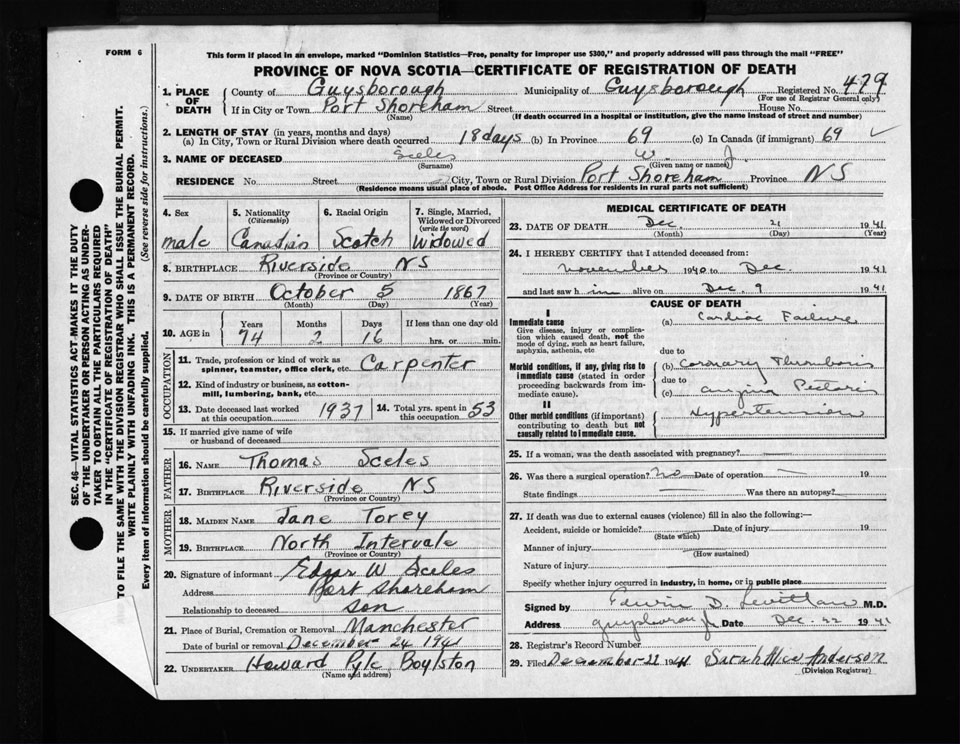 FORM 6
This form if placed in an envelope, marked "Dominion Statistics—Free, penalty for improper use $300," and properly addressed will pass through the mail "FREE"
PROVINCE OF NOVA SCOTIA—CERTIFICATE OF REGISTRATION OF DEATH
1. PLACE OF DEATH
County of Guysborough Municipality of Guysborough Registered No. 479
(For use of Registrar General only)
If in City or Town Port Shoreham Street House No.
(Name) (If death occurred in a hospital or institution, give the name instead of street and number)
2. LENGTH OF STAY (in years, months and days)
(a) In City, Town or Rural Division where death occurred 18 days (b) In Province 69 (c) In Canada (if immigrant) 69
3. NAME OF DECEASED Sceles W. J.
(Surname) (Given name or names)
RESIDENCE No. Street City, Town or Rural Division Port Shoreham Province NS
(Residence means usual place of abode. Post Office Address for residents in rural parts not sufficient)
4. Sex male
5. Nationality (Citizenship) Canadian
6. Racial Origin Scotch
7. Single, Married, Widowed or Divorced (write the word) Widowed
8. BIRTHPLACE Riverside NS
(Province or Country)
9. DATE OF BIRTH October 5 1867
(Month) (Day) (Year)
10. AGE in Years 74 Months 2 Days 16 If less than one day old hrs. or min.
OCCUPATION
11. Trade, profession or kind of work as spinner, teamster, office clerk, etc. Carpenter
12. Kind of industry or business, as cotton-mill, lumbering, bank, etc.
13. Date deceased last worked at this occupation 1937
14. Total yrs. spent in this occupation 53
15. If married give name of wife or husband of deceased
FATHER
16. NAME Thomas Sceles
17. BIRTHPLACE Riverside NS
(Province or Country)
MOTHER
18. MAIDEN NAME Jane Torey
19. BIRTHPLACE North Intervale
(Province or Country)
20. Signature of informant Edgar W Sceles
Address Port Shoreham
Relationship to deceased son
21. Place of Burial, Cremation or Removal Manchester
Date of burial or removal December 24 1941
22. UNDERTAKER Howard Pyle Boylston
(Name and address)
MEDICAL CERTIFICATE OF DEATH
23. DATE OF DEATH Dec. 21 1941
(Month) (Day) (Year)
24. I HEREBY CERTIFY that I attended deceased from:
November 1940 to Dec. 1941
and last saw him alive on Dec. 9 1941
CAUSE OF DEATH
I
Immediate cause
Give disease, injury or complication which caused death, not the mode of dying, such as heart failure, asphyxia, asthenia, etc
(a) Cardiac Failure
due to
Morbid conditions, if any, giving rise to immediate cause (stated in order proceeding backwards from immediate cause).
(b) Coronary Thrombosis
due to
(c) angina Pectoris
II
Other morbid conditions (if important) contributing to death but not causally related to immediate cause.
Hypertension
25. If a woman, was the death associated with pregnancy?
26. Was there a surgical operation? no Date of operation 19
State findings Was there an autopsy?
27. If death was due to external causes (violence) fill in also the following:—
Accident, suicide or homicide? Date of injury 19
(State which)
Manner of injury
(How sustained)
Nature of injury
Specify whether injury occurred in industry, in home, or in public place
Signed by Edwin D. M.D.
Address Date Dec. 22 1941
28. Registrar's Record Number
29. Filed December 22 1941 Sarah Alice Anderson
(Division Registrar)
SEC. 46—VITAL STATISTICS ACT—MAKES IT THE DUTY
OF THE UNDERTAKER OR PERSON ACTING AS UNDER-
TAKER TO OBTAIN ALL THE PARTICULARS REQUIRED
IN THE "CERTIFICATE OF REGISTRATION OF DEATH"
TO FILE THE SAME WITH THE DIVISION REGISTRAR WHO SHALL ISSUE THE BURIAL PERMIT.
WRITE PLAINLY WITH UNFADING INK. THIS IS A PERMANENT RECORD.
Every item of information should be carefully supplied. (See reverse side for instructions.)